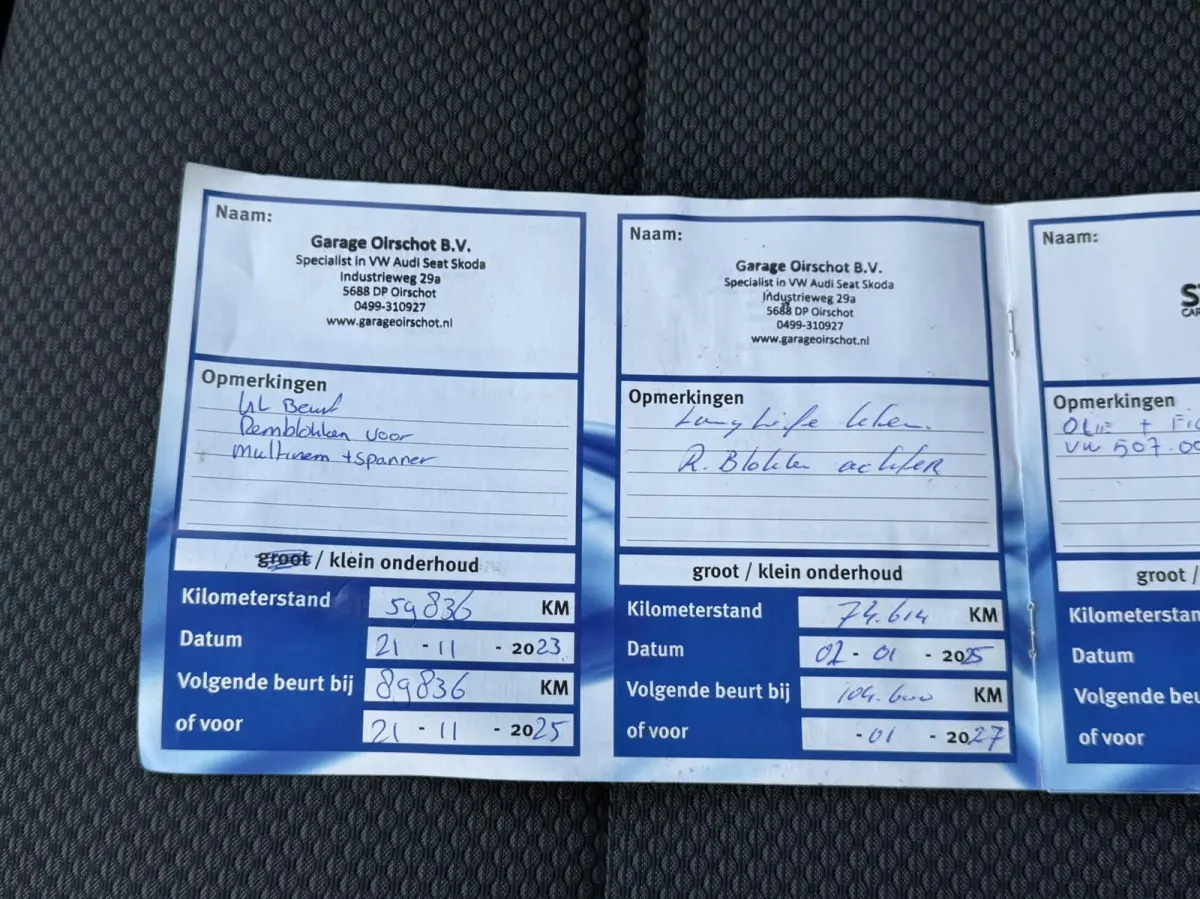 Naam:
Garage Oirschot B.V.
Specialist in VW Audi Seat Skoda
Industrieweg 29a
5688 DP Oirschot
0499-310927
www.garageoirschot.nl
Opmerkingen
Beurt
Remblokken voor
multiriem + spanner
groot / klein onderhoud
Kilometerstand 59836 KM
Datum 21 - 11 - 2023
Volgende beurt bij 89836 KM
of voor 21 - 11 - 2025
Naam:
Garage Oirschot B.V.
Specialist in VW Audi Seat Skoda
Industrieweg 29a
5688 DP Oirschot
0499-310927
www.garageoirschot.nl
Opmerkingen
R. Blokken achter
groot / klein onderhoud
Kilometerstand 74.614 KM
Datum 02 - 01 - 2025
Volgende beurt bij 104.600 KM
of voor - 01 - 2027
Naam:
Opmerkingen
OLIE +
VW 507.00
groot /
Kilometerstan
Datum
Volgende beu
of voor